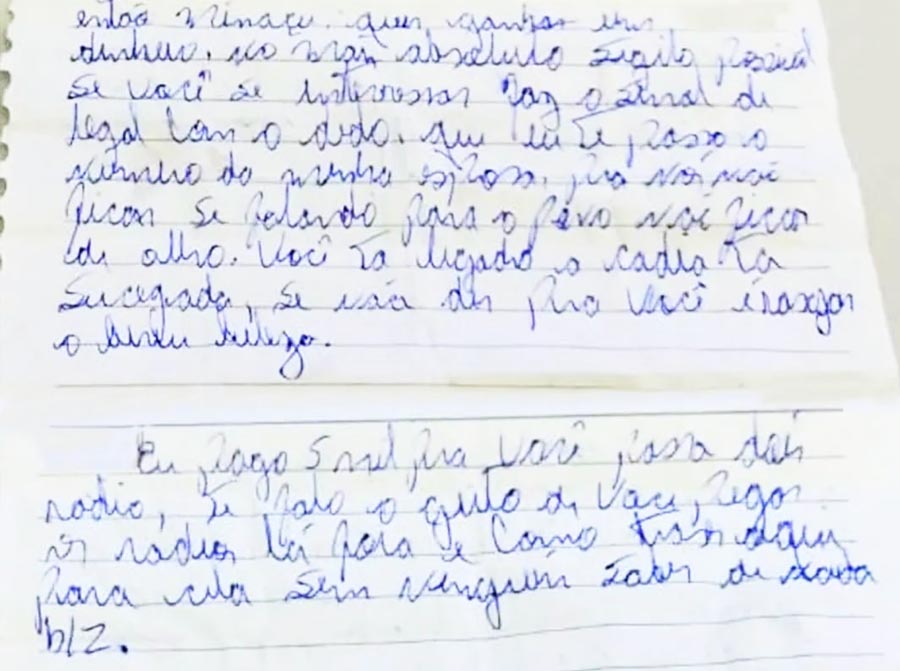 então Minaçu. quer ganhar um
dinheiro. no mais absoluto sigilo possivel
se você se interessar faz o sinal de
legal com o dedo. que eu te passo o
número da minha esposa. pra nós não
ficar se falando para o povo não ficar
de olho. você ta ligado a cadia ta
sucegada, se não der pra você
o
Eu pago 5 mil pra você passa dois
radio, te falo o geito de você pegar
os rádios lá fora e como trazer aqui
para cela sem ninguém saber de nada
blz.